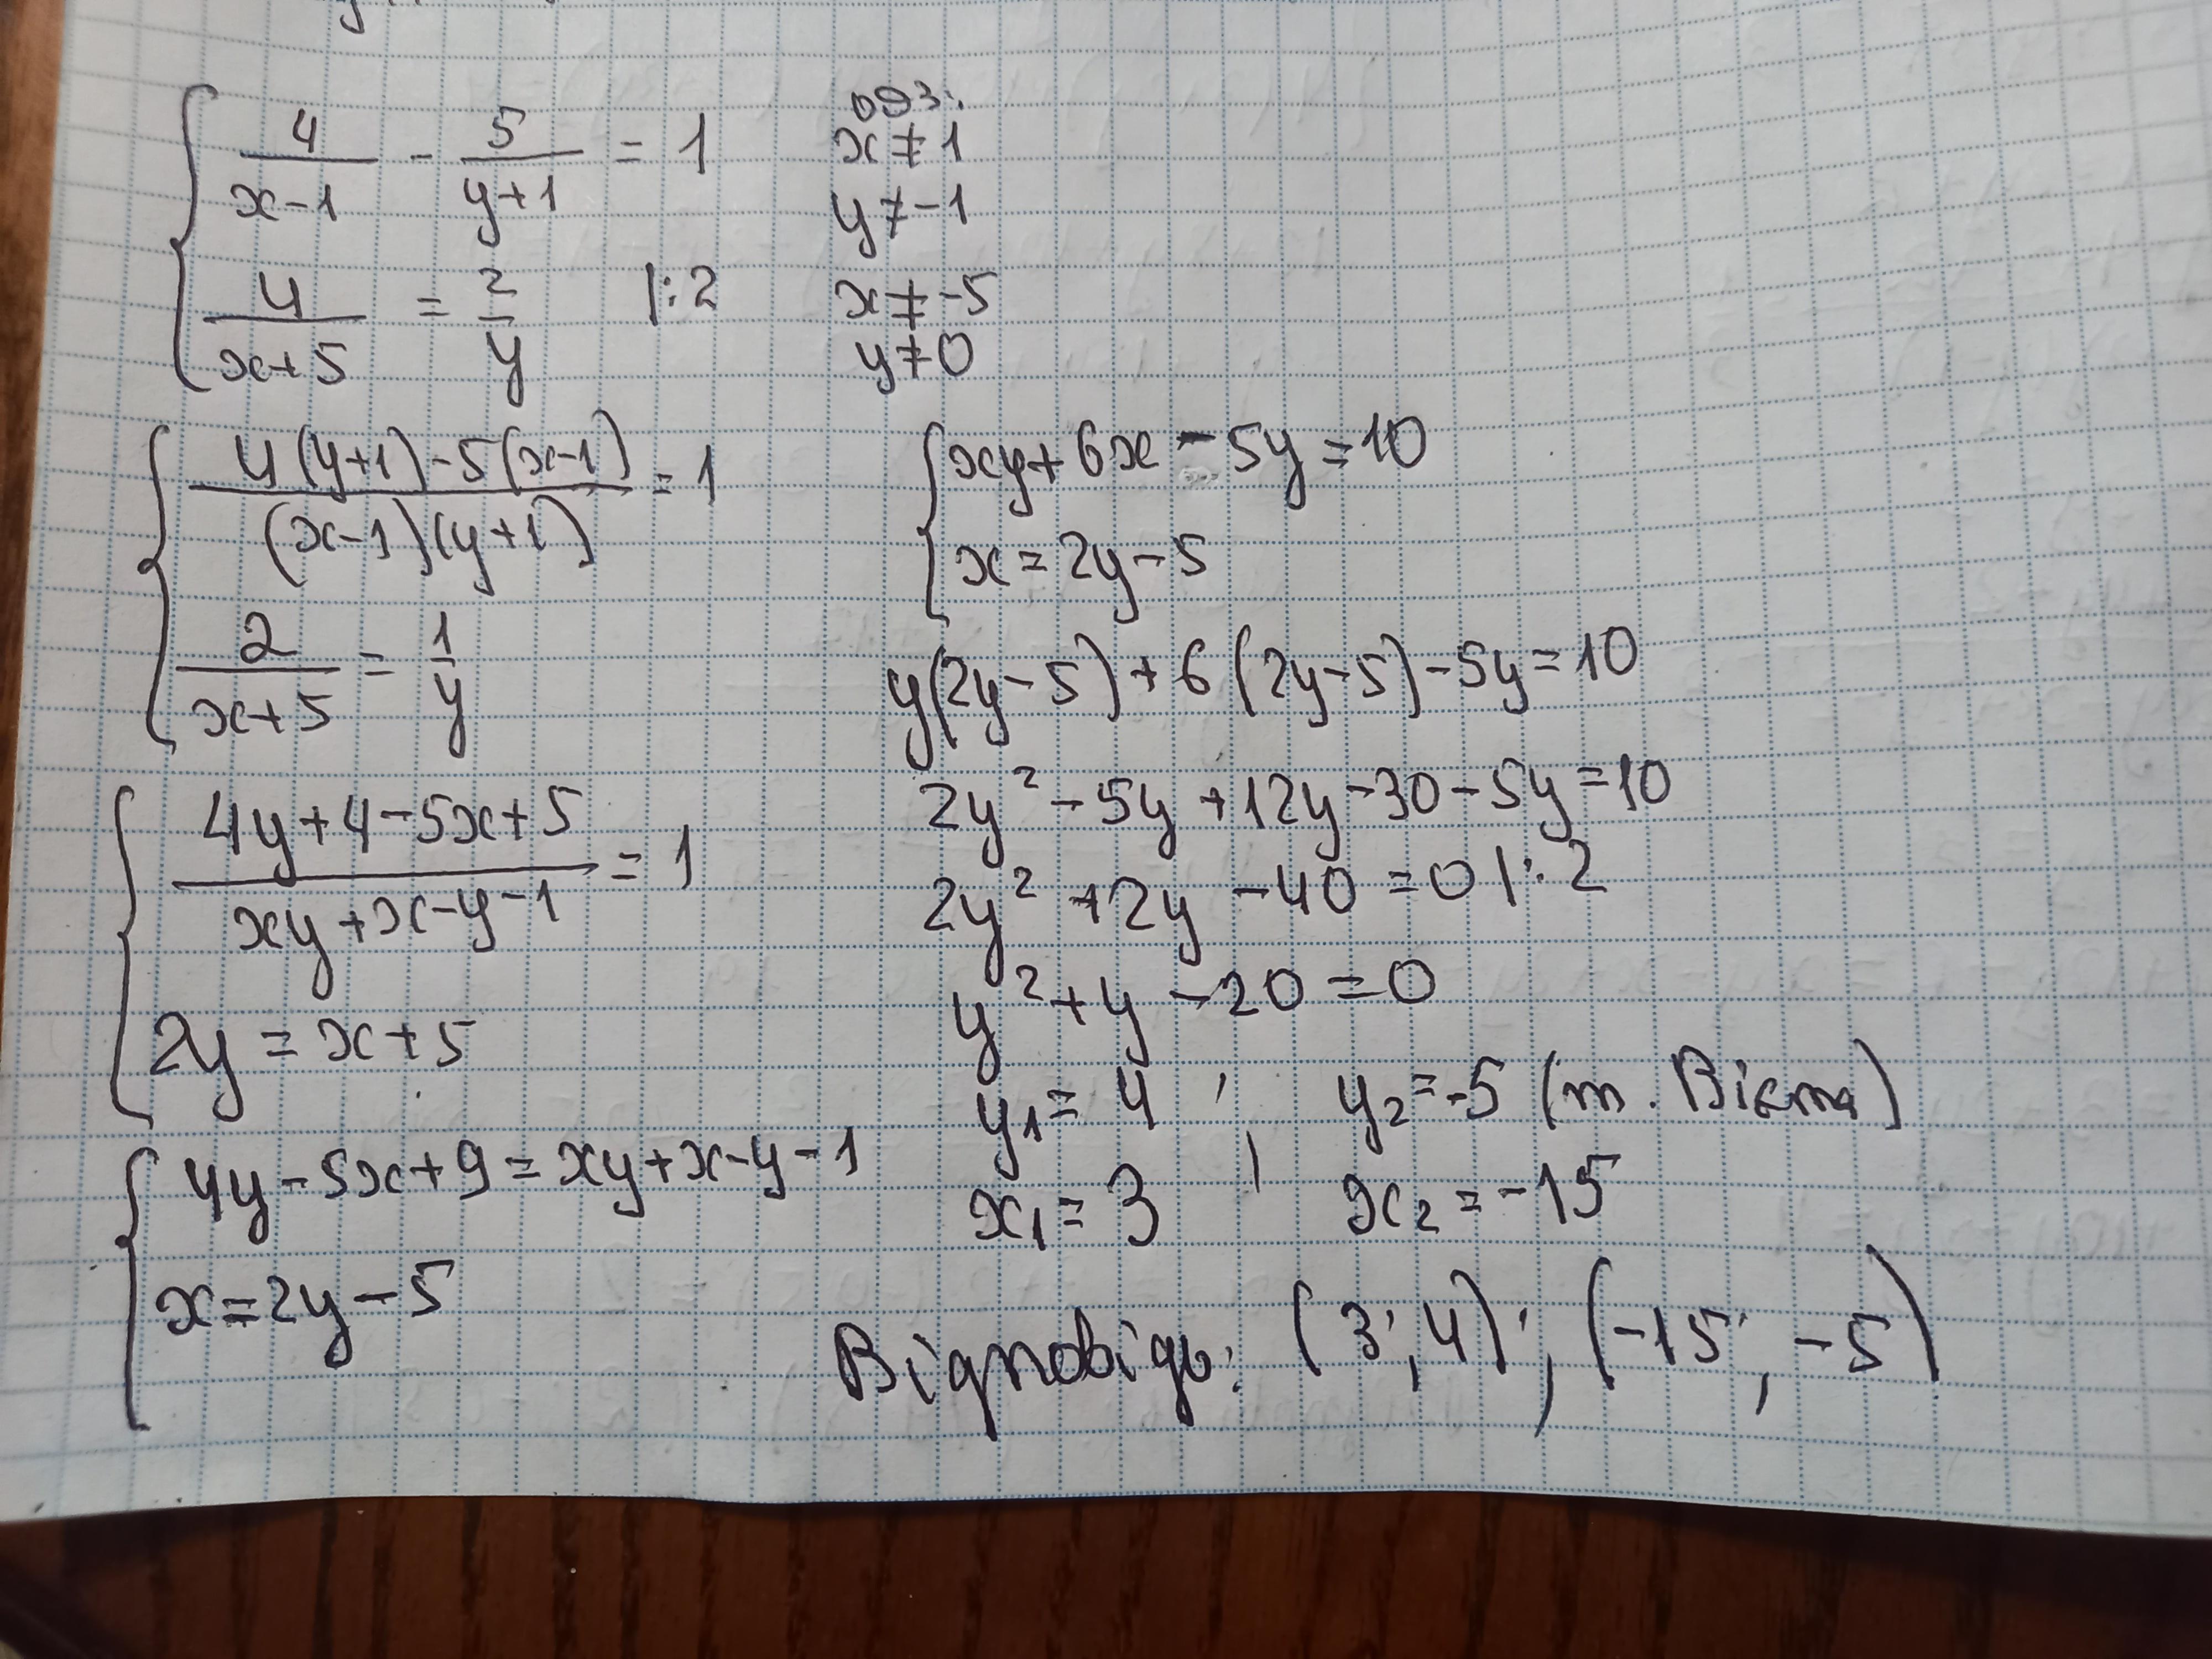 4/(x-1) - 5/(y+1) = 1
4/(x+5) = 2/y |:2
одз:
x ≠ 1
y ≠ -1
x ≠ -5
y ≠ 0
(4(y+1)-5(x-1))/((x-1)(y+1)) = 1
2/(x+5) = 1/y
(4y+4-5x+5)/(xy+x-y-1) = 1
2y = x+5
4y-5x+9=xy+x-y-1
x=2y-5
xy+6x-5y=10
x=2y-5
y(2y-5)+6(2y-5)-5y=10
2y²-5y+12y-30-5y=10
2y²+2y-40=0 |:2
y²+y-20=0
y₁=4 ; y₂=-5 (т. Вієта)
x₁=3 ; x₂=-15
Відповідь: (3;4); (-15;-5)